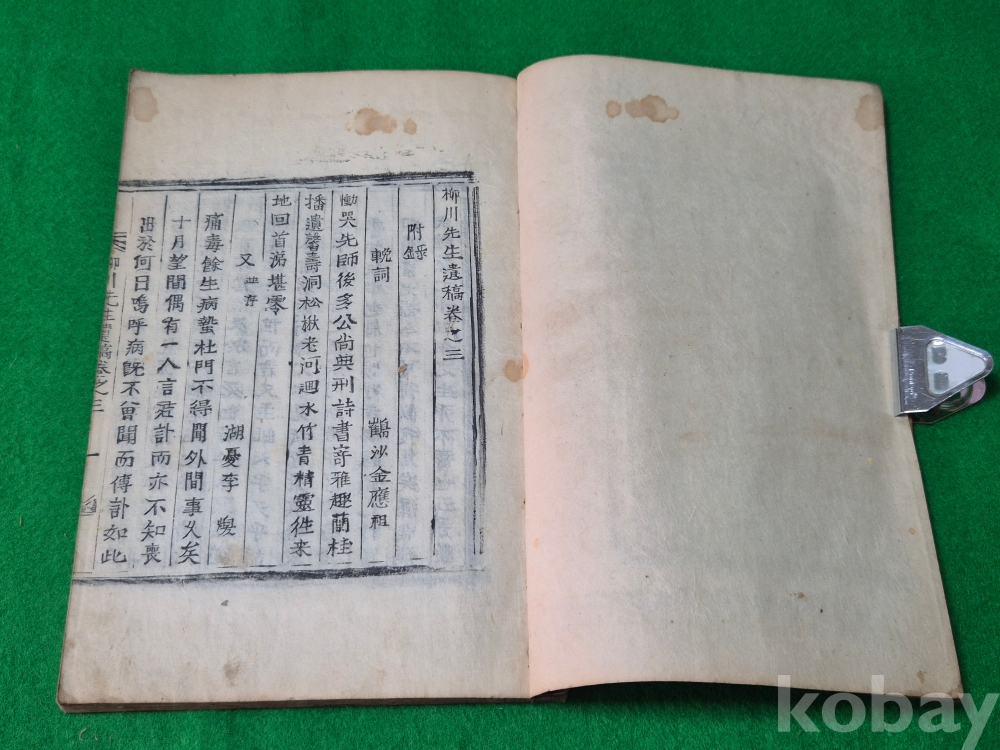 柳川先生遺稿卷之三
附錄
輓詞
鶴沙金應祖
慟哭先師後多公尙典刑詩書嵜雅趣蘭桂
播遺馨壽洞松楸老河迴水竹青精靈徃来
地回首涕堪零
又 並序
湖憂李 煥
痛毒餘生病蟄杜門不得聞外間事乆矣
十月望間偶有一人言君訃而亦不知喪
出於何日嗚呼病旣不會聞而傳訃如此
柳川先生遺稿卷之三 一
kobay